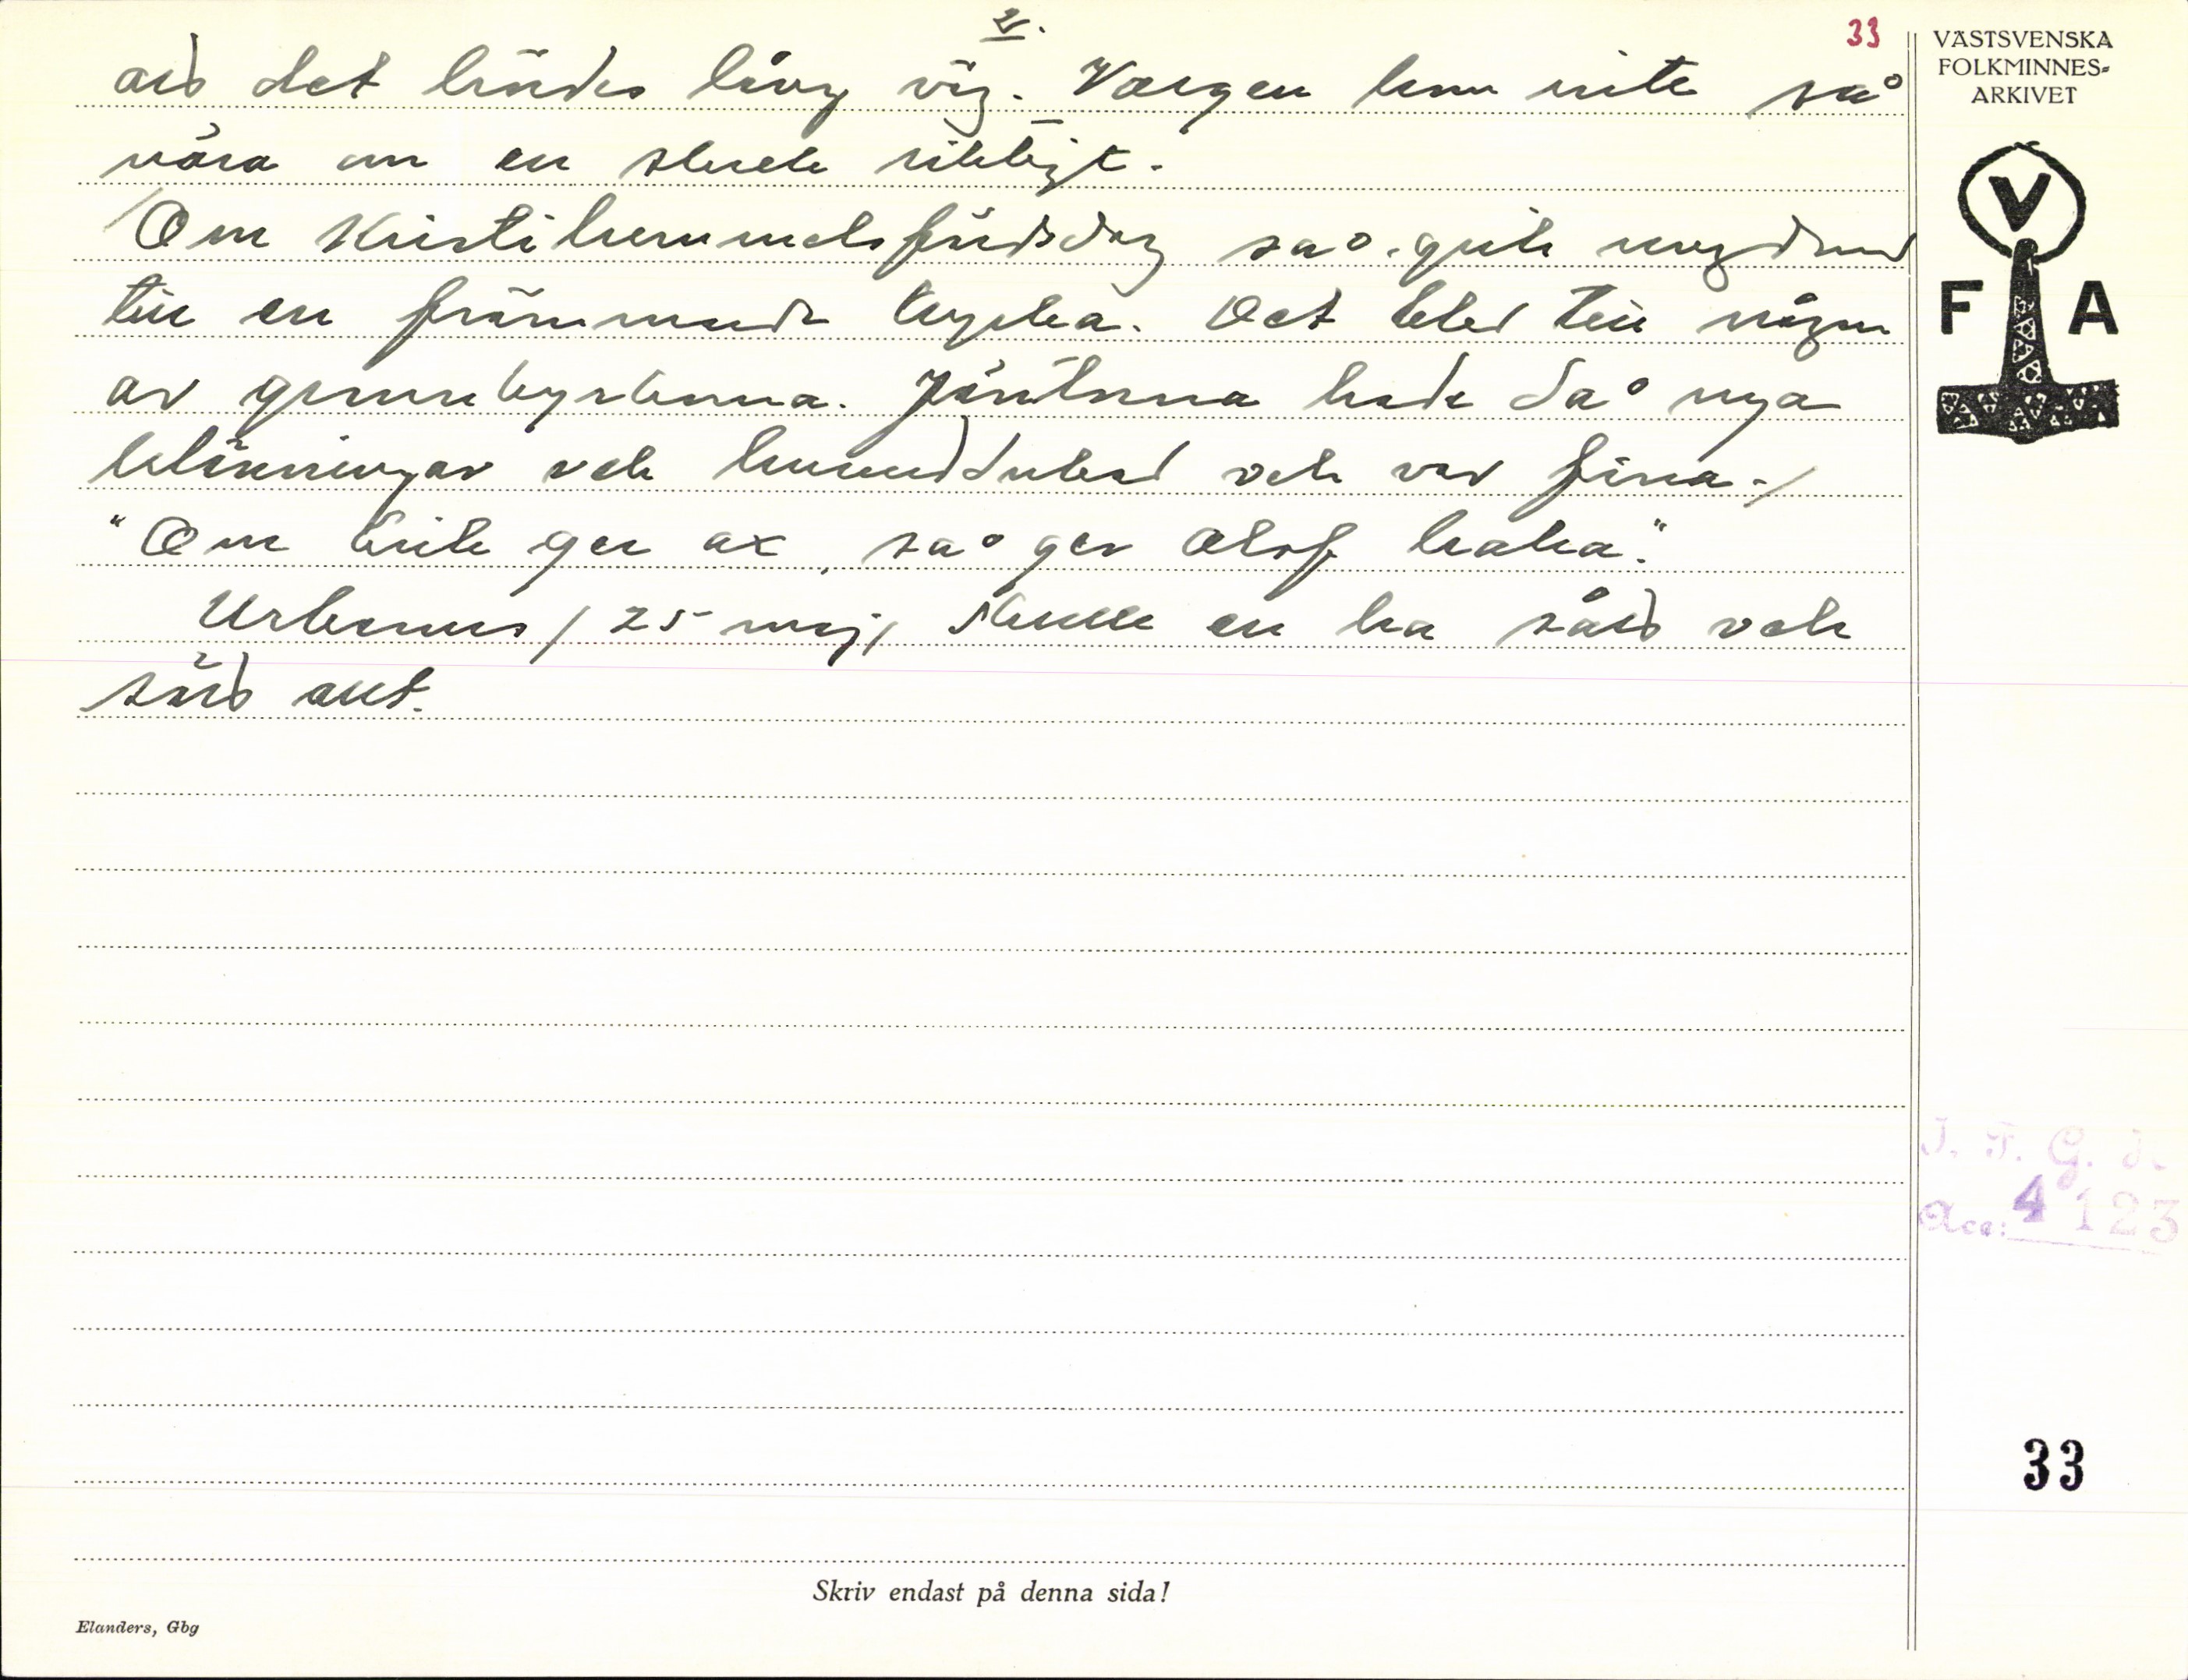 2.
33
VÄSTSVENSKA
FOLKMINNES-
ARKIVET
V
F A
att det hördes lång väg. Vargen kom inte så
nära om en skrek riktigt.
/Om Kristihimmelsfärdsdag så gick ungdomen
till en främmande kyrka. Det blev till någon
av grannkyrkorna. Jäntorna hade då nya
klänningar och huvuddukar och var fina./
"Om Erik ger ax, så ger Olof kaka."
Urbanus / 25 maj / skulle en ha sått och
sått allt.
J. F. G. J.
Acc: 4123
33
Skriv endast på denna sida!
Elanders, Gbg